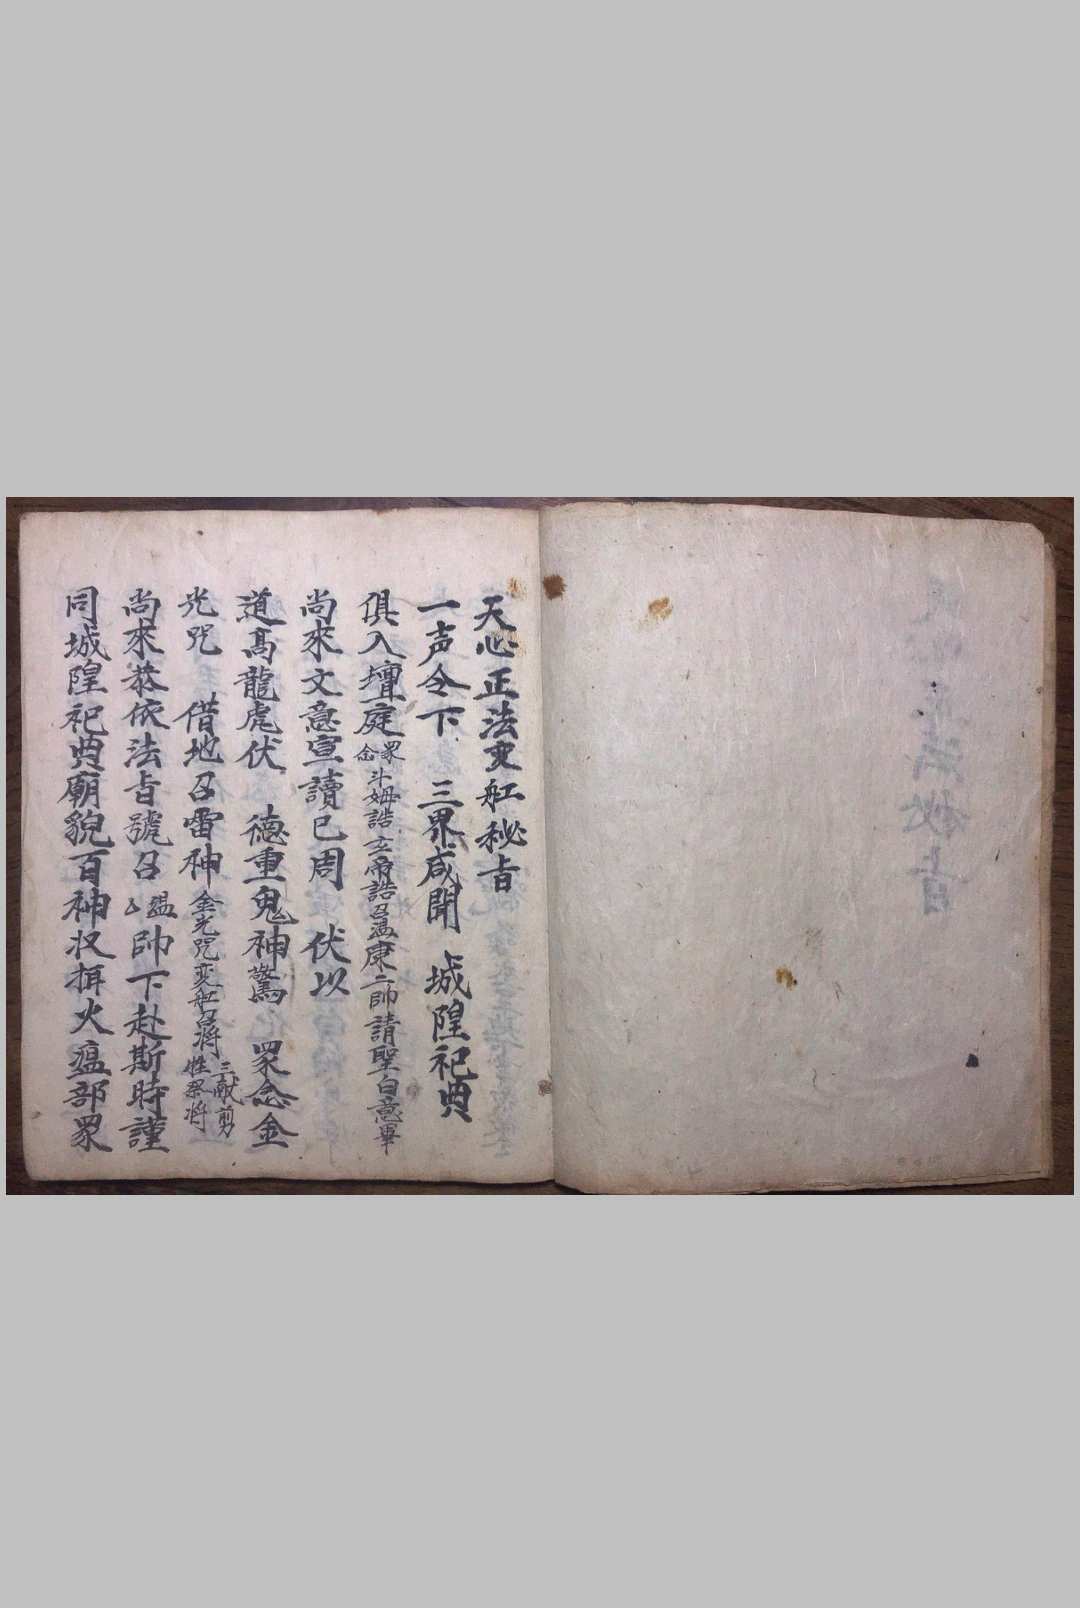 天心正法変舡秘旨
一声令下 三界咸聞 城隍祀典
俱入壇庭 衆念 斗姆誥 玄帝誥 召温康二帥 請聖白意畢
尚來文意宣讀已周 伏以
道髙龍虎伏 德重鬼神驚 衆念金
光咒 借地召雷神 金光咒 変舡召将 三献剪牲 犒将
尚來恭依法旨號召 温 帥下赴斯時謹
同城隍祀典廟貌百神収捐火瘟部衆